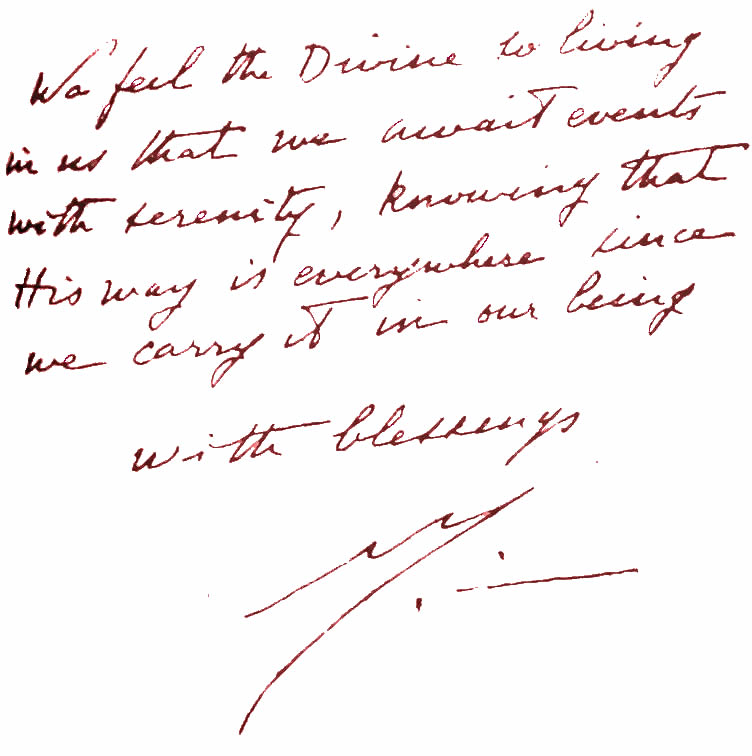 We feel the Divine so living
in us that we await events
with serenity, knowing that
His way is everywhere since
we carry it in our being
with blessings